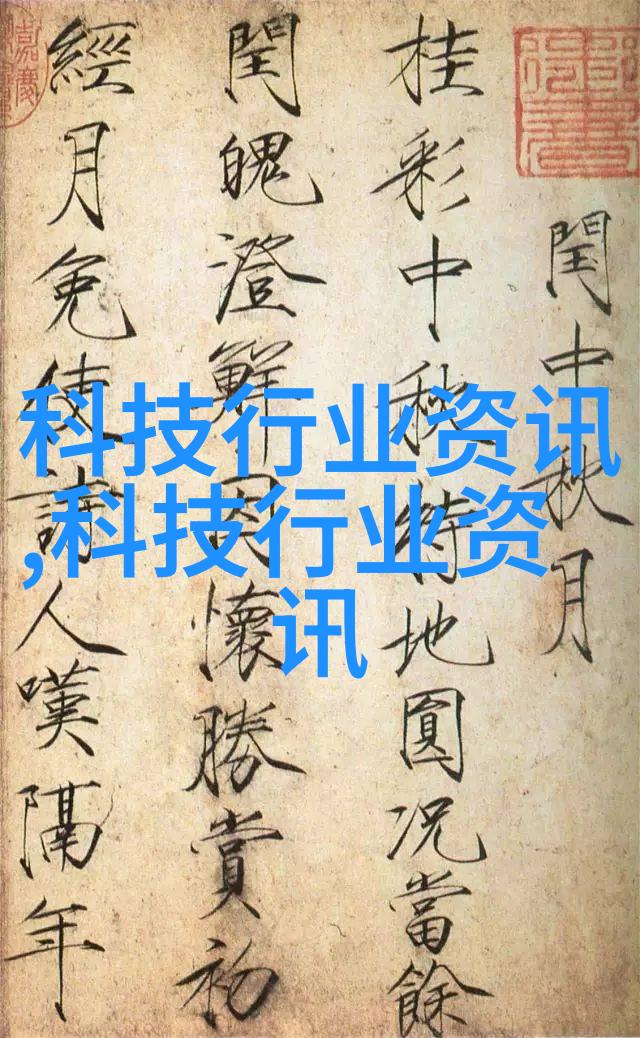 閏中秋月
桂彩中秋特地圓況當餘
閏魄澄鮮因懷勝賞初
經月免使詩人嘆隔年
科技行业资讯
,科技行业资
讯